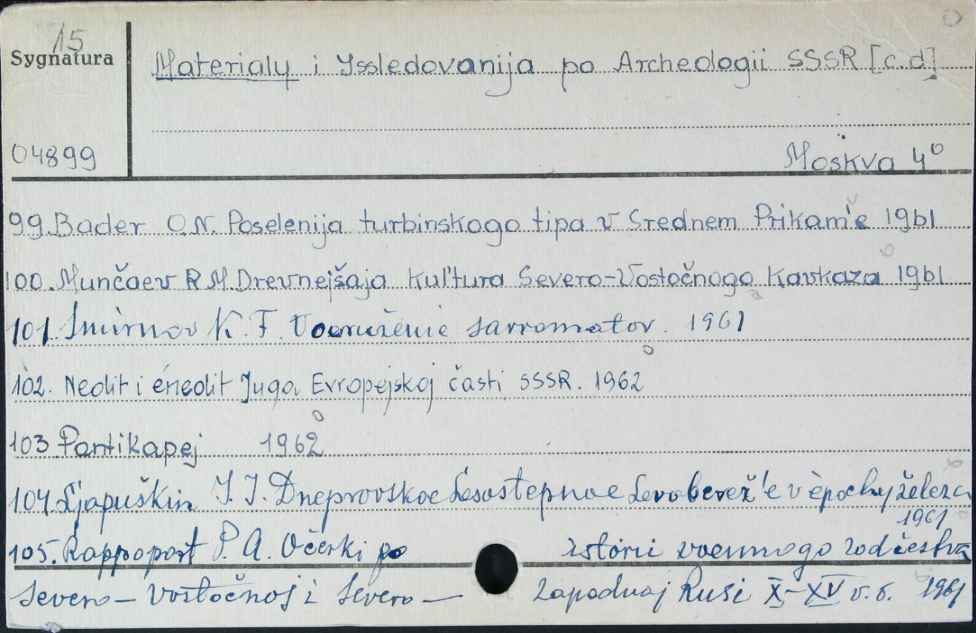 15
Sygnatura
Materialy i Issledovanija po Archeologii SSSR [c.d]
04899
Moskva 4°
99. Bader O.N. Poselenija turbinskogo tipa v Srednem Prikam'e 1961
100. Munčaev R.M. Drevnejšaja kul'tura Severo-Vostočnogo Kavkaza 1961
101. Smirnov K. F. Vooruženie savromatov. 1961
102. Neolit i èneolit Juga Evropejskoj časti SSSR. 1962
103 Pantikapej 1962
104. Ljapuškin I. I. Dneprovskoe Lesostepnoe Levoberež'e v èpochu železa
1961
105. Rappoport P. A. Očerki po istorii voennogo zodčestva
Severo-Vostočnoj i Severo-Zapadnoj Rusi X-XV v.v. 1961